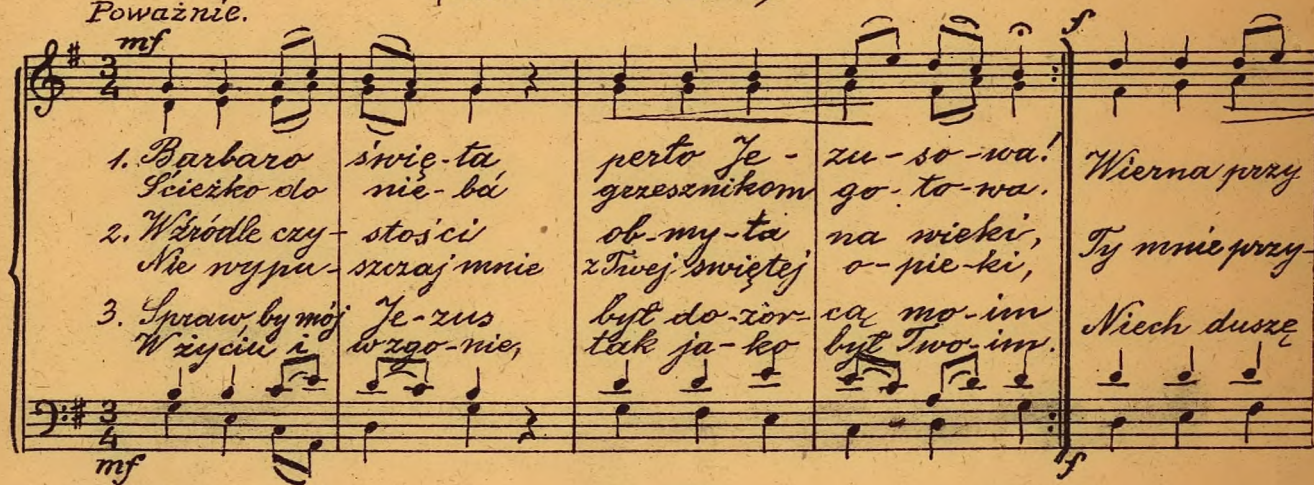 Poważnie.
mf
f
3
4
1. Barbaro świę-ta perło Je- zu-so-wa! Wierna przy
Ścieżko do nie-bá grzesznikom go-to-wa.
2. W źródle czy- stości ob-my-ta na wieki, Ty mnie przy-
Nie wypu- szczaj mnie z Twej swiętej o-pie-ki,
3. Spraw, by mój Je-zus był do-zor- cą mo-im Niech duszę
W życiu i w zgo-nie, tak ja-ko był Two-im.
3
4
mf
f